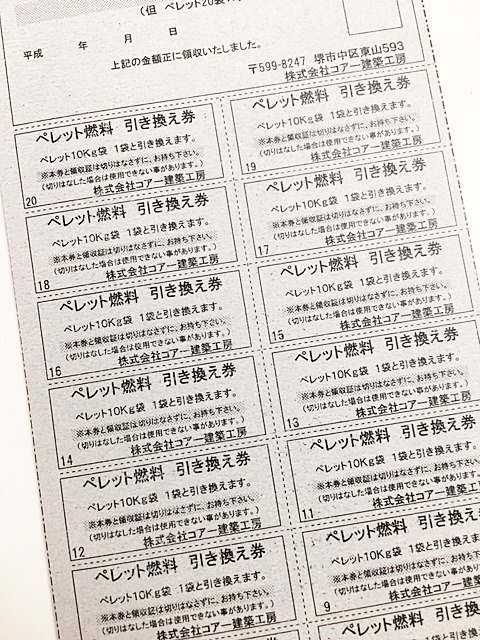 (但 ペレット20袋
平成 年 月 日
上記の金額正に領収いたしました。
〒599-8247 堺市中区東山593
株式会社コアー建築工房
ペレット燃料 引き換え券
ペレット10Kg袋 1袋と引き換えます。
※本券と領収証は切りはなさずに、お持ち下さい。
(切りはなした場合は使用できない事があります。)
20 株式会社コアー建築工房
ペレット燃料 引き換え券
ペレット10Kg袋 1袋と引き換えます。
※本券と領収証は切りはなさずに、お持ち下さい。
(切りはなした場合は使用できない事があります。)
19 株式会社コアー建築工房
ペレット燃料 引き換え券
ペレット10Kg袋 1袋と引き換えます。
※本券と領収証は切りはなさずに、お持ち下さい。
(切りはなした場合は使用できない事があります。)
18 株式会社コアー建築工房
ペレット燃料 引き換え券
ペレット10Kg袋 1袋と引き換えます。
※本券と領収証は切りはなさずに、お持ち下さい。
(切りはなした場合は使用できない事があります。)
17 株式会社コアー建築工房
ペレット燃料 引き換え券
ペレット10Kg袋 1袋と引き換えます。
※本券と領収証は切りはなさずに、お持ち下さい。
(切りはなした場合は使用できない事があります。)
16 株式会社コアー建築工房
ペレット燃料 引き換え券
ペレット10Kg袋 1袋と引き換えます。
※本券と領収証は切りはなさずに、お持ち下さい。
(切りはなした場合は使用できない事があります。)
15 株式会社コアー建築工房
ペレット燃料 引き換え券
ペレット10Kg袋 1袋と引き換えます。
※本券と領収証は切りはなさずに、お持ち下さい。
(切りはなした場合は使用できない事があります。)
14 株式会社コアー建築工房
ペレット燃料 引き換え券
ペレット10Kg袋 1袋と引き換えます。
※本券と領収証は切りはなさずに、お持ち下さい。
(切りはなした場合は使用できない事があります。)
13 株式会社コアー建築工房
ペレット燃料 引き換え券
ペレット10Kg袋 1袋と引き換えます。
※本券と領収証は切りはなさずに、お持ち下さい。
(切りはなした場合は使用できない事があります。)
12 株式会社コアー建築工房
ペレット燃料 引き換え券
ペレット10Kg袋 1袋と引き換えます。
※本券と領収証は切りはなさずに、お持ち下さい。
(切りはなした場合は使用できない事があります。
11 株式会社コアー建築工房
ペレット燃料 引き換え券
ペレット10Kg袋 1袋と引き換えます。
※本券と領収証は切りはなさずに、お持ち下さい。
(切りはなした場合は使用できない事があります。)
株式会社コアー建築工房
ペレット燃料 引き換え券
ペレット10Kg袋 1袋と引き換え
※本券と領収証は切りはなさずに、お持ち下
(切りはなした場合は使用できない事があり
9 株式会社コアー建築
ペレット燃料 引き換え